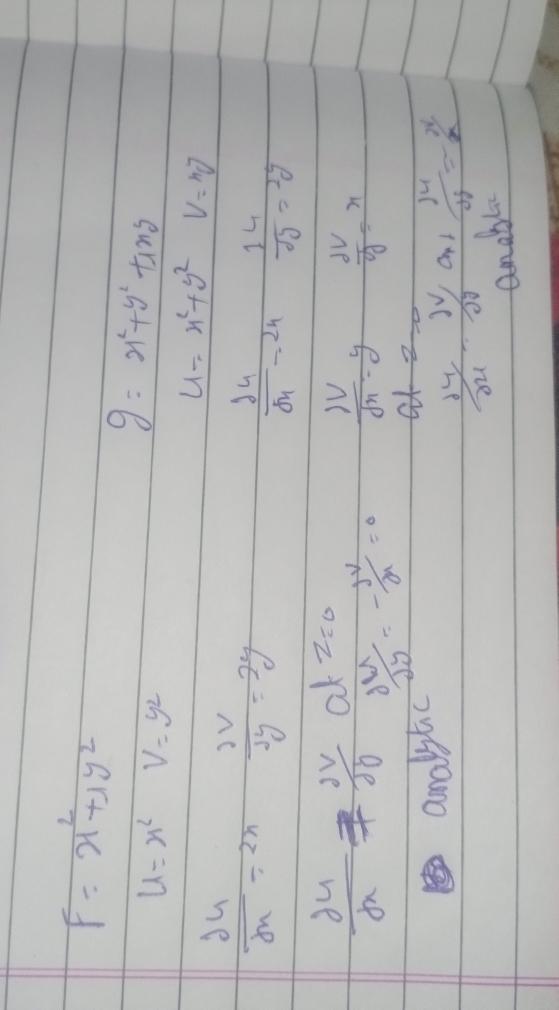 F = x² + iy²
u = x² v = y²
∂u/∂x = 2x ∂v/∂y = 2y
∂u/∂x = ∂v/∂y at z=0
∂u/∂y = -∂v/∂x = 0
analytic
g = x² + y² + ixy
u = x² + y² v = xy
∂u/∂x = 2x ∂u/∂y = 2y
∂v/∂x = y ∂v/∂y = x
at z=0
∂u/∂x = ∂v/∂y and ∂u/∂y = -∂v/∂x
analytic